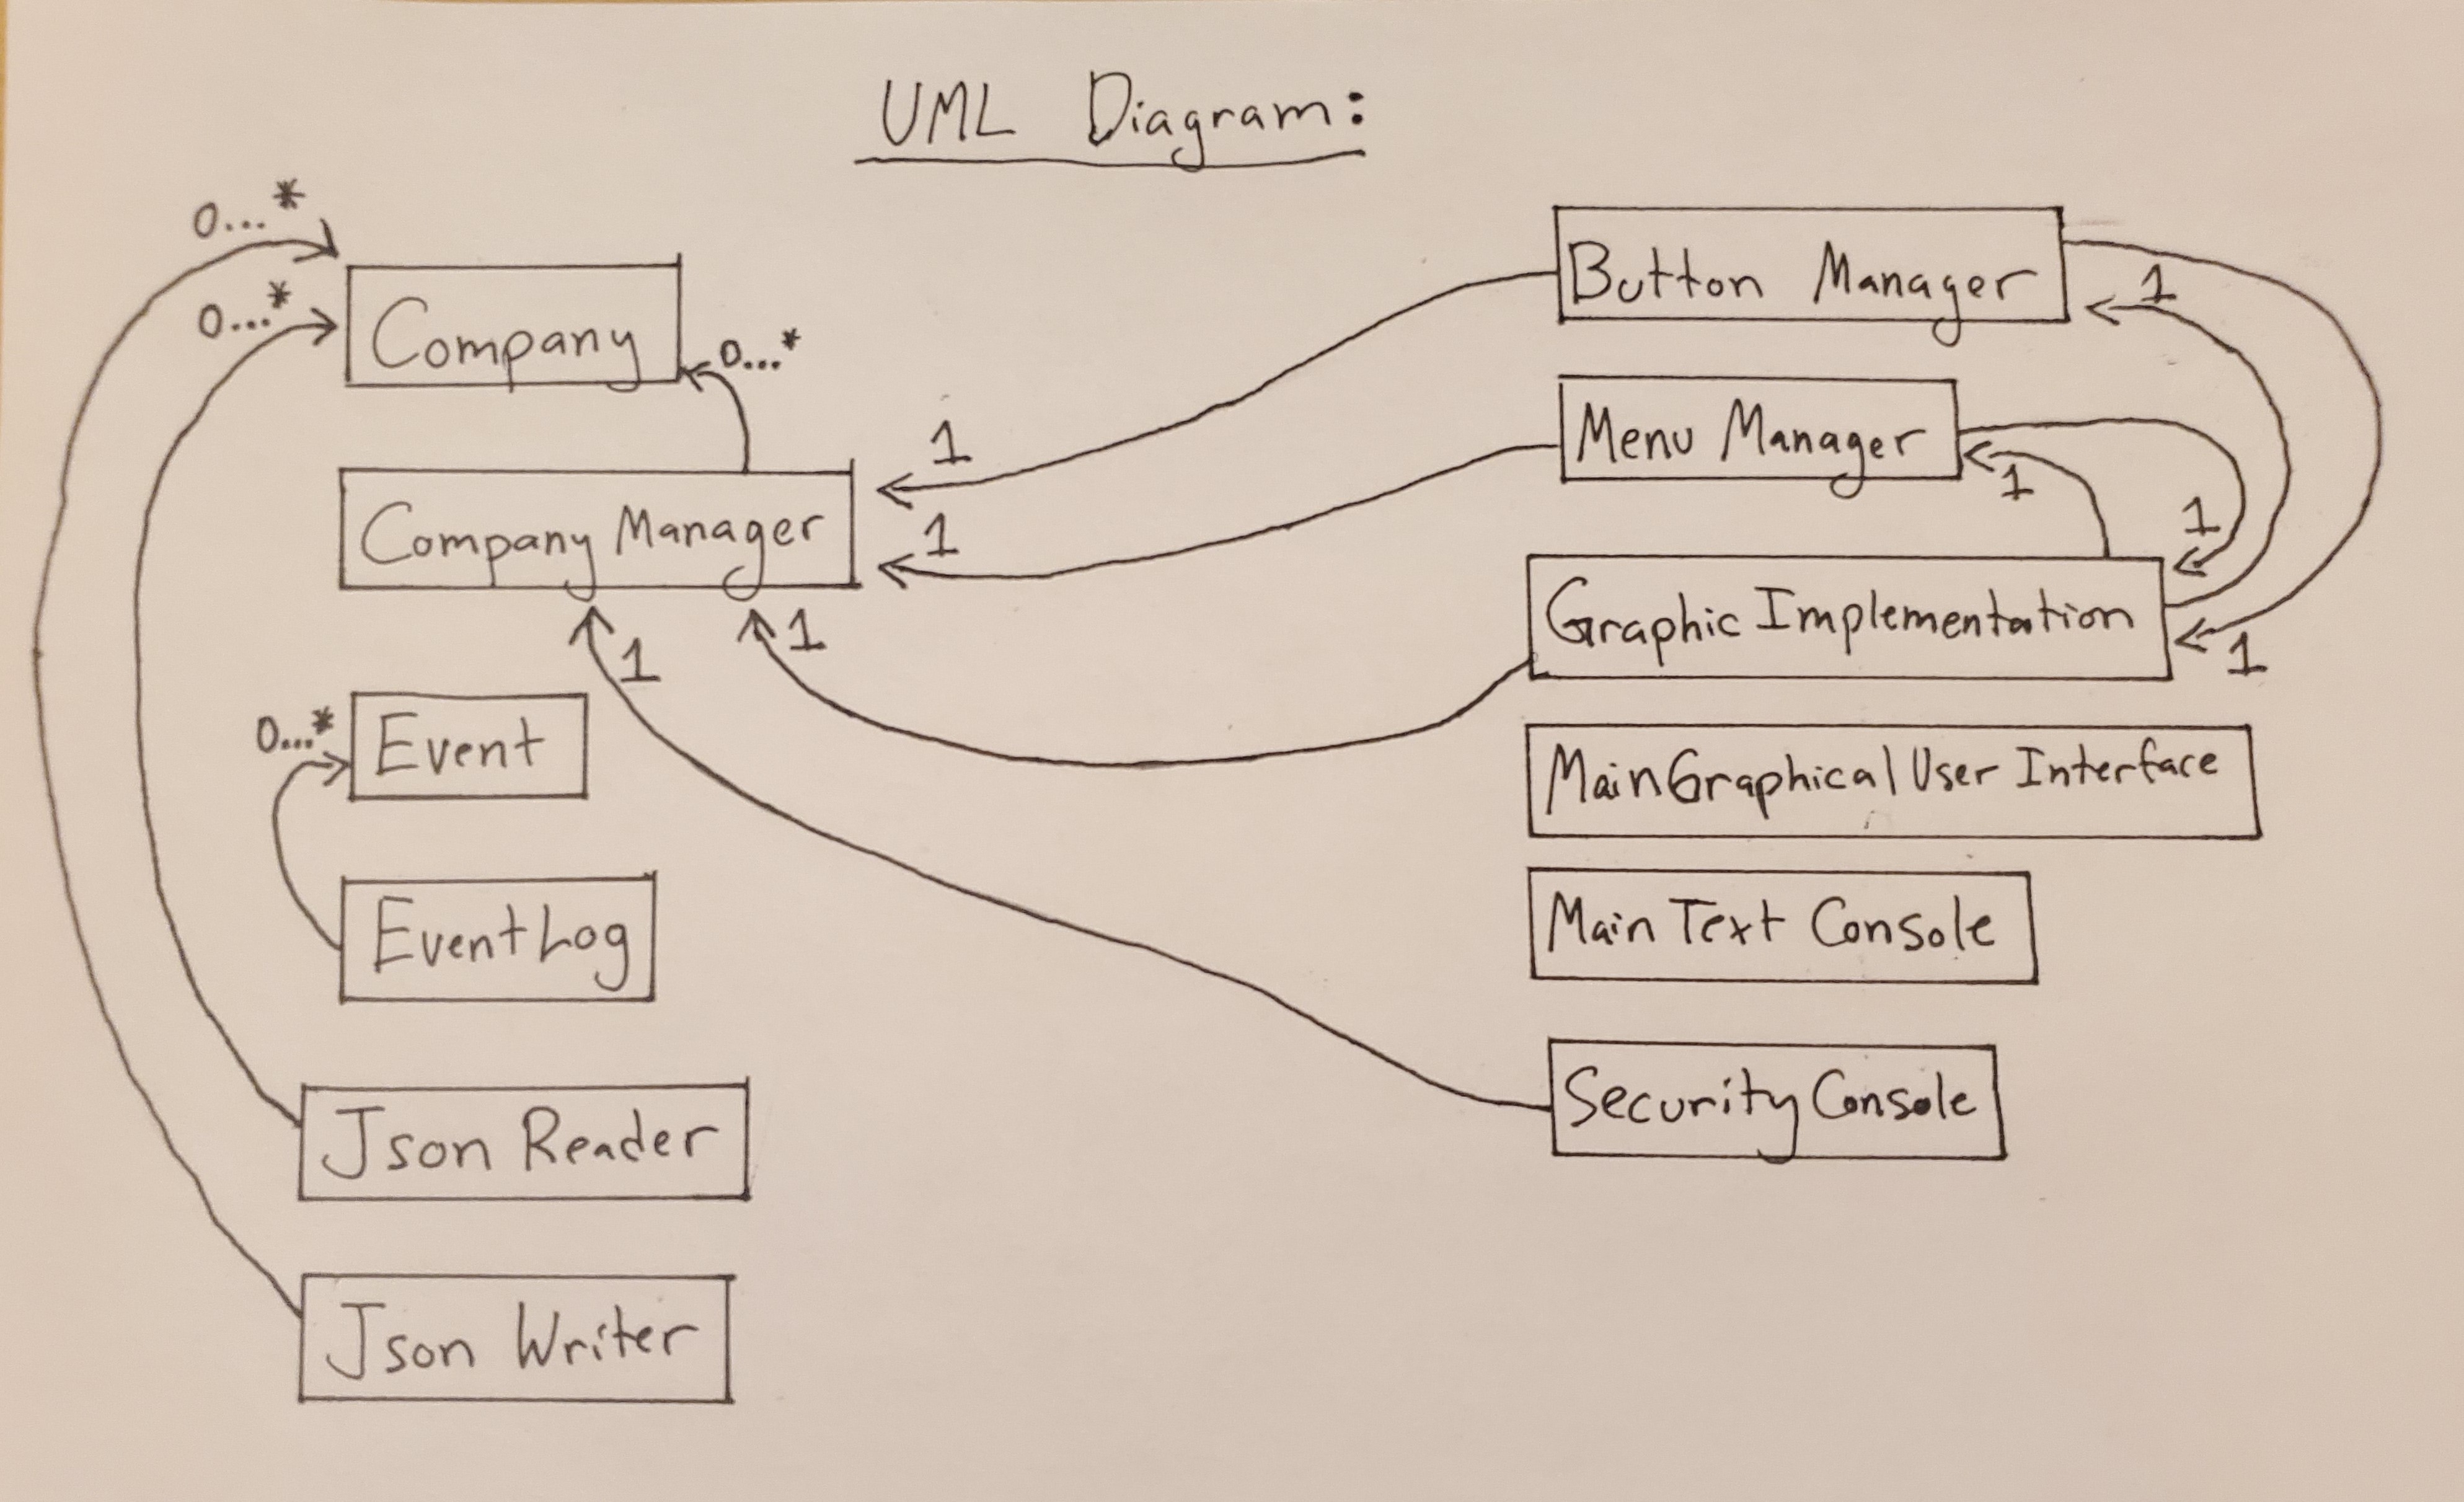 UML Diagram:
0...*
0...*
Company
0...*
Company Manager
1
1
1
1
0...*
Event
Event Log
Json Reader
Json Writer
Button Manager
1
Menu Manager
1
1
Graphic Implementation
1
Main Graphical User Interface
Main Text Console
Security Console